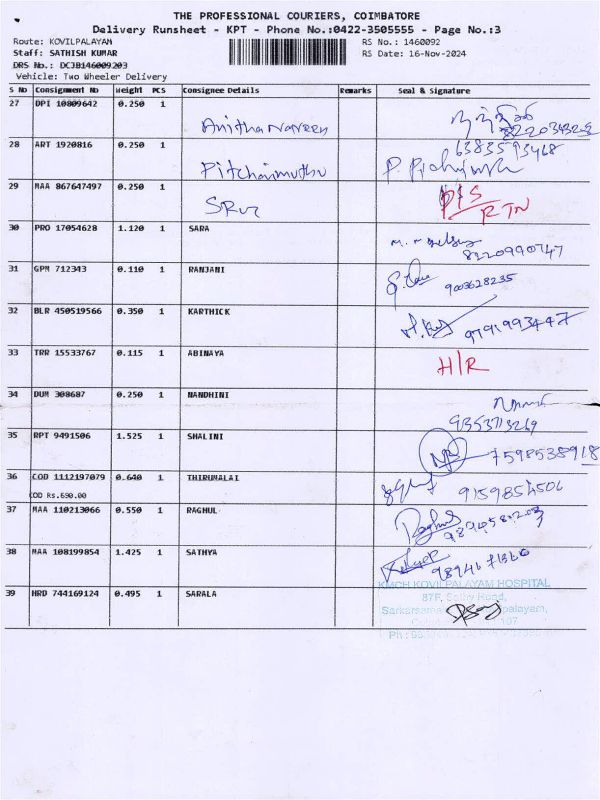 THE PROFESSIONAL COURIERS, COIMBATORE
Delivery Runsheet - KPT - Phone No.:0422-3505555 - Page No.:3
Route: KOVILPALAYAM RS No.: 1460092
Staff: SATHISH KUMAR RS Date: 16-Nov-2024
DRS No.: DCJB146009203
Vehicle: Two Wheeler Delivery
S No Consignment No Weight PCS Consignee Details Remarks Seal & Signature
27 DPI 10809642 0.250 1 Anitha Naveen
28 ART 1920816 0.250 1 Pitchaimuthu 6383593468
29 MAA 867647497 0.250 1 RTN
30 PRO 17054628 1.120 1 SARA 8220990747
31 GPM 712343 0.110 1 RANJANI 9003628235
32 BLR 450519566 0.350 1 KARTHICK 9791993447
33 TRR 15533767 0.115 1 ABINAYA H/R
34 DUM 308687 0.250 1 NANDHINI 9353713269
35 RPT 9491506 1.525 1 SHALINI 7598538918
36 COD 1112197079 0.640 1 THIRUMALAI 9159854506
COD Rs.690.00
37 MAA 110213066 0.550 1 RAGHUL Raghul
38 MAA 108199854 1.425 1 SATHYA
39 HRD 744169124 0.495 1 SARALA
KMCH KOVILPALAYAM HOSPITAL
87F, Road,
107